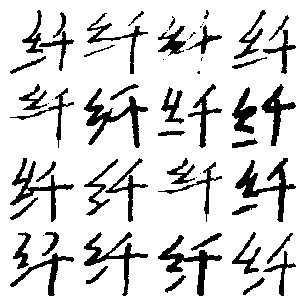 纤纤纤纤
纤纤纤纤
纤纤纤纤
纤纤纤纤